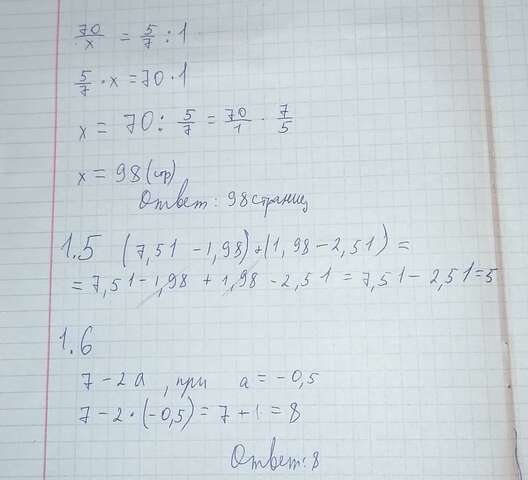 70/x = 5/7 : 1
5/7 · x = 70 · 1
x = 70 : 5/7 = 70/1 · 7/5
x = 98 (стр)
Ответ: 98 страниц
1.5 (7,51 - 1,98) + (1,98 - 2,51) =
= 7,51 - 1,98 + 1,98 - 2,51 = 7,51 - 2,51 = 5
1.6
7 - 2a , при a = -0,5
7 - 2 · (-0,5) = 7 + 1 = 8
Ответ: 8